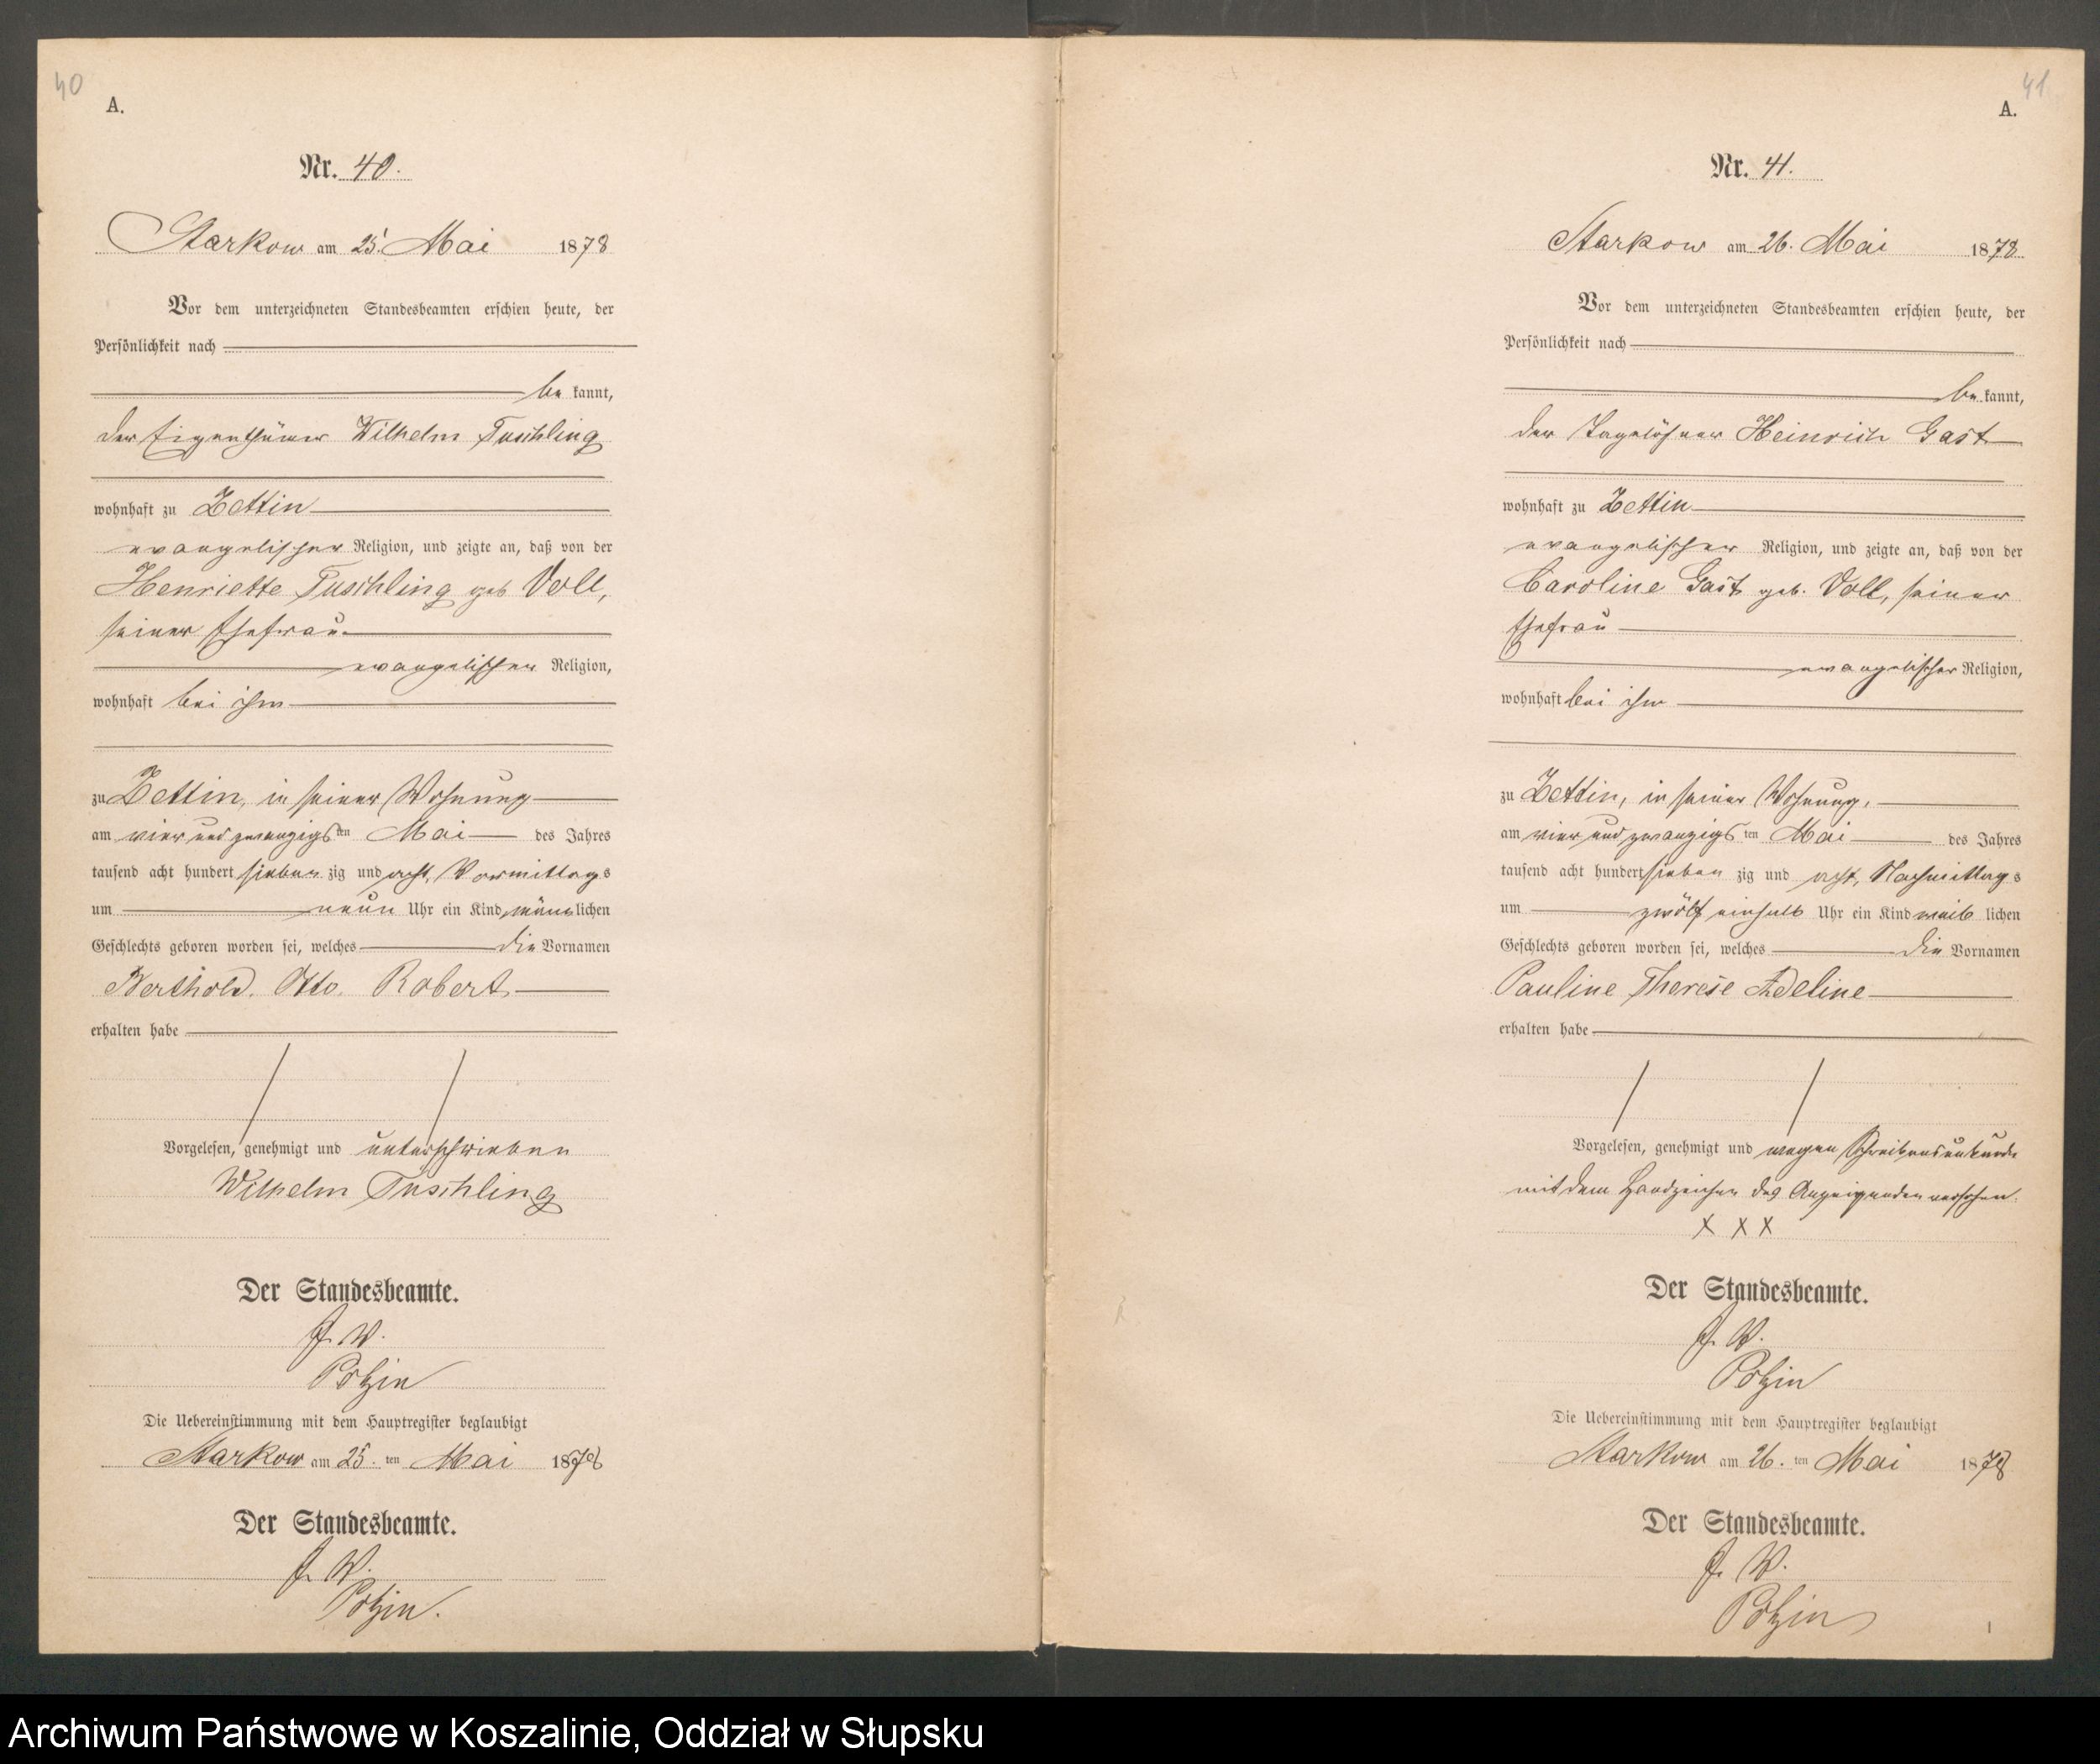 40
A.
Nr. 40.
Starkow am 25. Mai 1878
Vor dem unterzeichneten Standesbeamten erschien heute, der
Persönlichkeit nach
be kannt,
der Eigenthümer Wilhelm Tuschling
wohnhaft zu Zettin
evangelischer Religion, und zeigte an, daß von der
Henriette Tuschling geb Voll,
seiner Ehefrau
evangelischer Religion,
wohnhaft bei ihm
zu Zettin, in seiner Wohnung
am vier und zwanzigsten Mai des Jahres
tausend acht hundert siebenzig und acht, Vormittags
um neun Uhr ein Kind männlichen
Geschlechts geboren worden sei, welches die Vornamen
Berthold. Otto. Robert
erhalten habe
Vorgelesen, genehmigt und unterschrieben
Wilhelm Tuschling
Der Standesbeamte.
J. V.
Potzin
Die Uebereinstimmung mit dem Hauptregister beglaubigt
Starkow am 25. ten Mai 1878
Der Standesbeamte.
J. V.
Potzin.
41
A.
Nr. 41.
Starkow am 26. Mai 1878
Vor dem unterzeichneten Standesbeamten erschien heute, der
Persönlichkeit nach
be kannt,
der Tagelöhner Heinrich Gast
wohnhaft zu Zettin
evangelischer Religion, und zeigte an, daß von der
Caroline Gast geb. Voll, seiner
Ehefrau
evangelischer Religion,
wohnhaft bei ihm
zu Zettin, in seiner Wohnung,
am vier und zwanzigsten Mai des Jahres
tausend acht hundert sieben zig und acht, Nachmittags
um zwölf einhalb Uhr ein Kind weib lichen
Geschlechts geboren worden sei, welches die Vornamen
Pauline Therese Adeline
erhalten habe
Vorgelesen, genehmigt und wegen Schreibensunkunde
mit dem Handzeichen des Anzeigenden versehen.
X X X
Der Standesbeamte.
J. V.
Potzin
Die Uebereinstimmung mit dem Hauptregister beglaubigt
Starkow am 26. ten Mai 1878
Der Standesbeamte.
J. V.
Potzin
Archiwum Państwowe w Koszalinie, Oddział w Słupsku